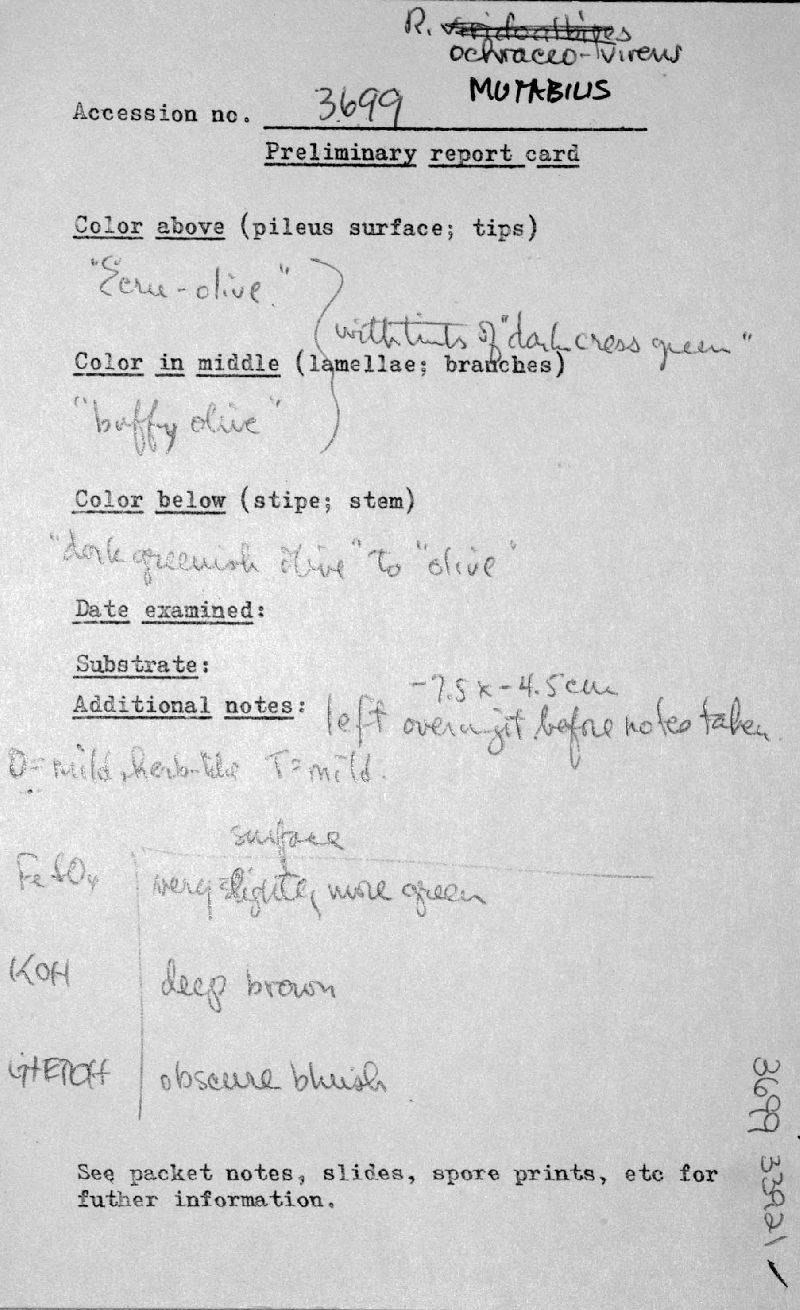 R. viridoalbipes
ochraceo-virens
MUTABILIS
Accession no. 3699
Preliminary report card
Color above (pileus surface; tips)
"Ecru-olive."
with tints of "dark cress green"
Color in middle (lamellae; branches)
"buffy olive"
Color below (stipe; stem)
"dark greenish olive" to "olive"
Date examined:
Substrate:
-7.5 x -4.5 cm
Additional notes: left overnight before notes taken.
O=mild, herb-like T=mild.
surface
FeSO4 very slightly more green
KOH deep brown
G+ETOH obscure bluish
3699 33921
See packet notes, slides, spore prints, etc for
futher information.